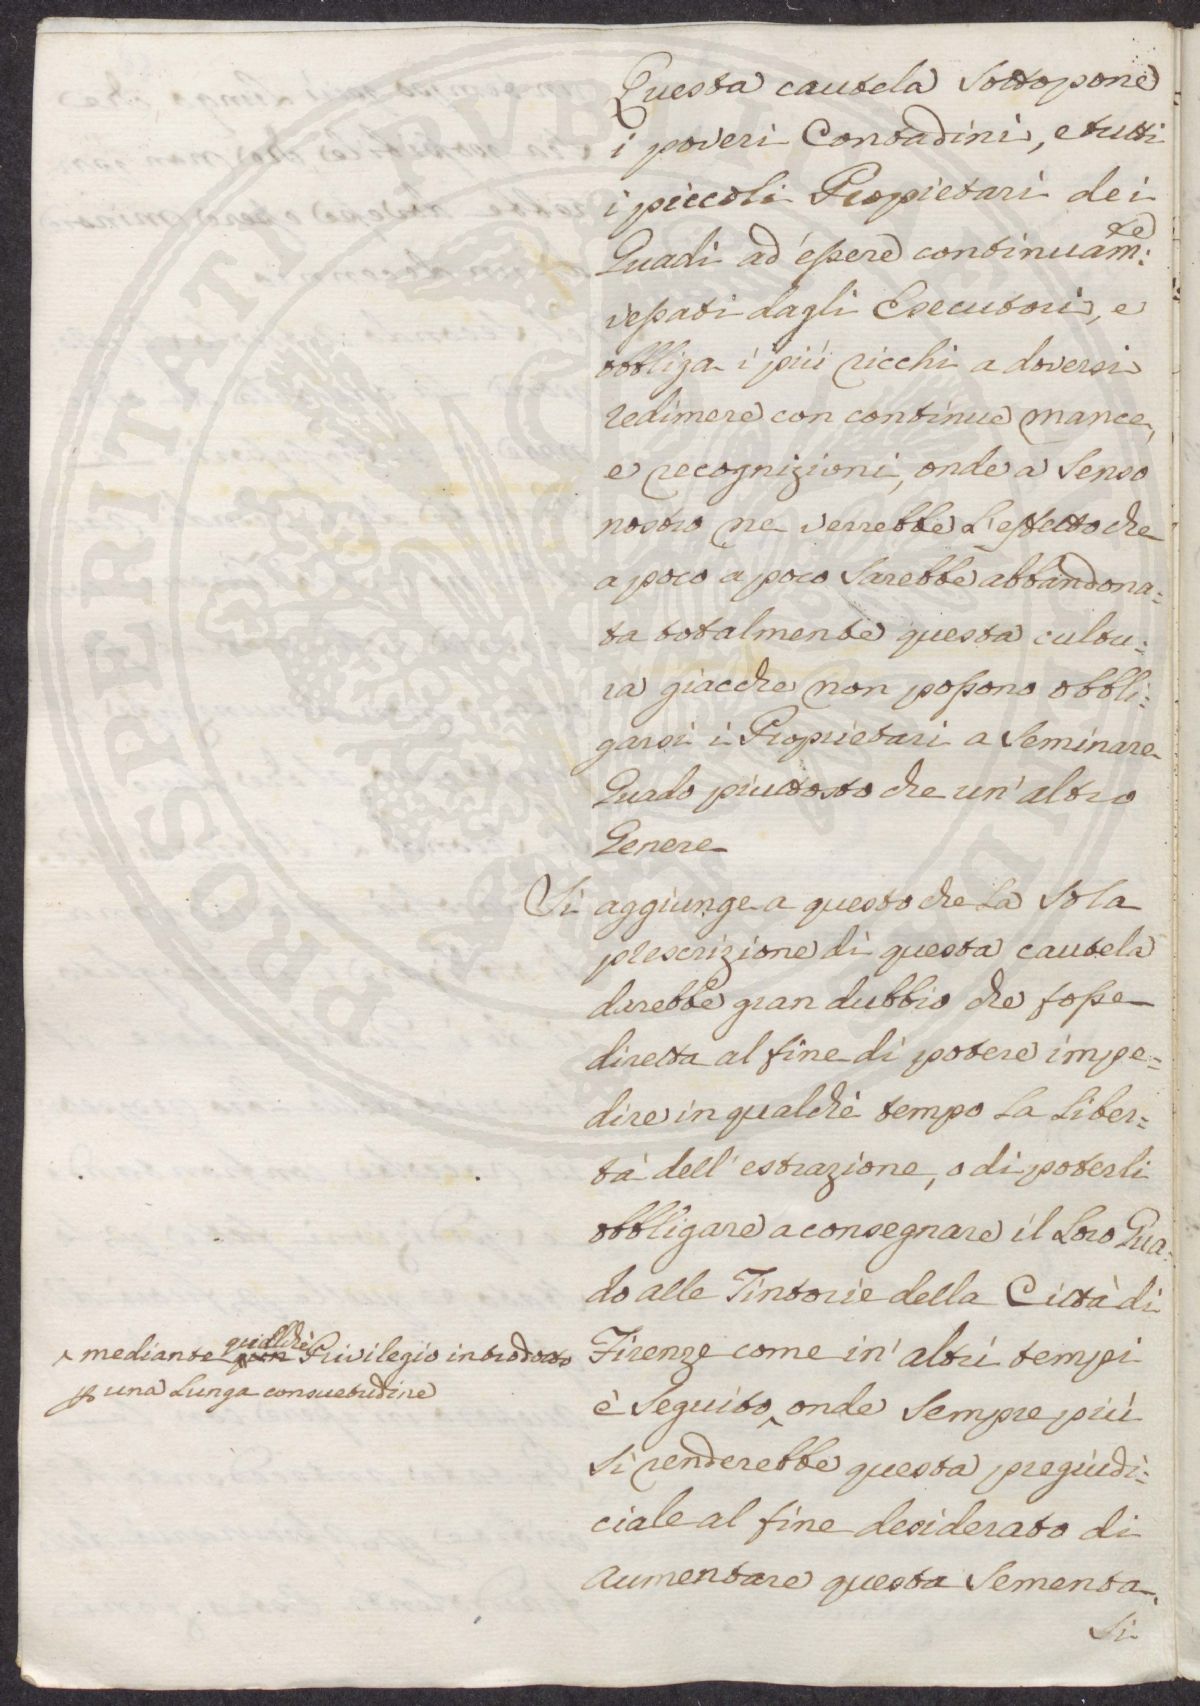 Questa cautela sottopone
i poveri Contadini, e tutti
i piccoli Propietari dei
Guadi ad essere continuam:te
vessati dagli Esecutori, e
obbliga i più ricchi a doversi
redimere con continue mance,
e recognizioni, onde a senso
nostro ne verrebbe L'effetto che
a poco a poco sarebbe abbandona=
ta totalmente questa cultu=
ra giacche non possono obbli=
garsi i Proprietari a seminare
Guado piuttosto che un' altro
Genere
Si aggiunge a questo che La sola
prescrizione di questa cautela
darebbe gran dubbio che fosse
diretta al fine di potere impe=
dire in qualche tempo La Liber=
tà dell' estrazione, o di poterli
obbligare a consegnare il Loro Gua=
do alle Tintorie della Città di
Firenze come in' altri tempi
è seguito, ^ onde sempre più
si renderebbe questa pregiudi=
ciale al fine desiderato di
aumentare questa sementa.
Si
^ mediante qualche Privilegio introdotto
p una Lunga consuetudine
PUBLICAE
PROSPERITATI